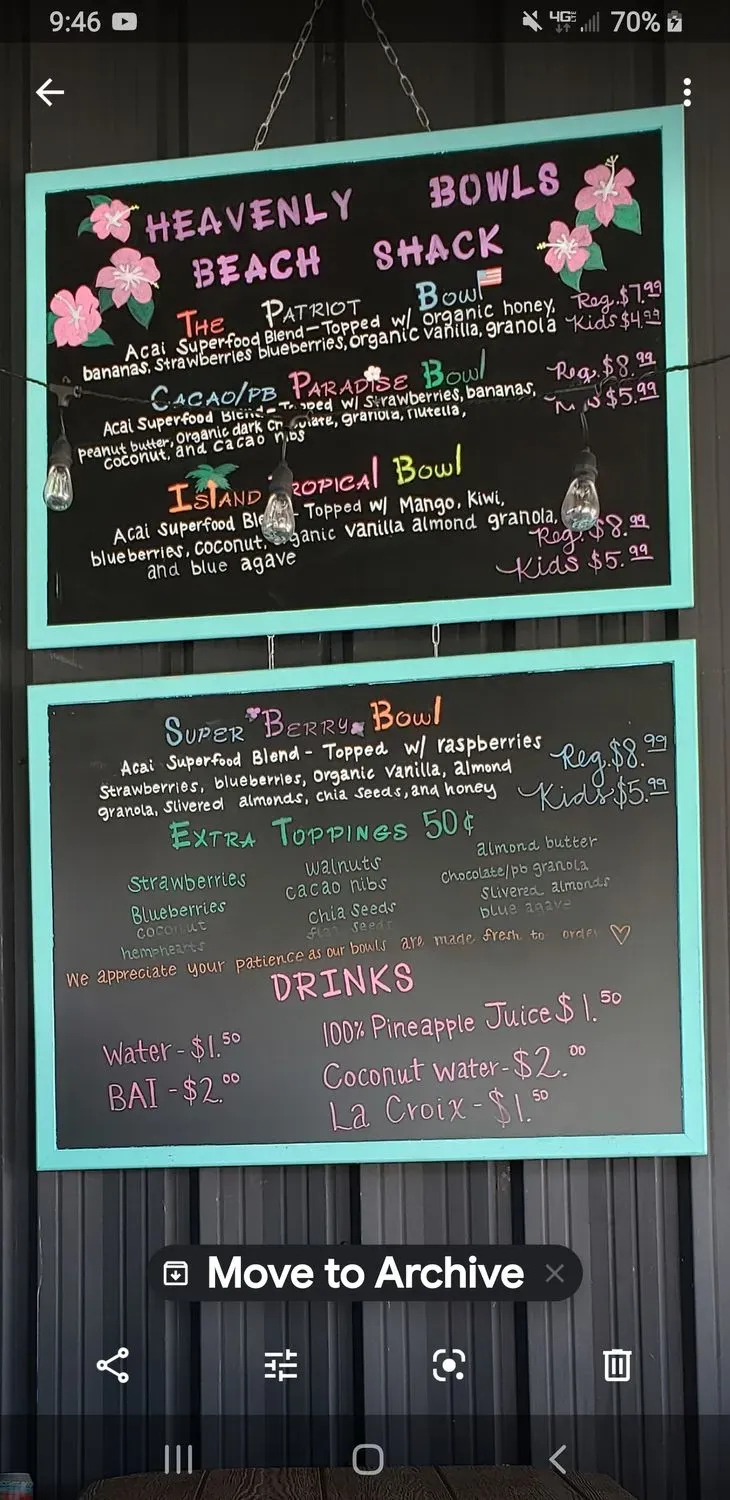 9:46
4GE 70%
HEAVENLY BOWLS
BEACH SHACK
THE PATRIOT BOWL
Acai Superfood Blend - Topped w/ organic honey,
bananas, strawberries blueberries, organic vanilla, granola
Reg. $7.99
Kids $4.99
CACAO/PB PARADISE BOWL
Acai Superfood Blend - Topped w/ strawberries, bananas,
peanut butter, organic dark granola, nutella,
coconut, and cacao nibs
Reg. $8.99
$5.99
ISLAND TROPICAL BOWL
Acai Superfood Topped w/ Mango, Kiwi,
blueberries, coconut, organic vanilla almond granola,
and blue agave
Reg. $8.99
Kids $5.99
SUPER BERRY BOWL
Acai Superfood Blend - Topped w/ raspberries
Strawberries, blueberries, Organic Vanilla, almond
granola, slivered almonds, chia seeds, and honey
Reg. $8.99
Kids $5.99
EXTRA TOPPINGS 50¢
Strawberries walnuts almond butter
Blueberries cacao nibs chocolate/pb granola
coconut chia seeds slivered almonds
hemphearts flax seeds blue agave
We appreciate your patience as our bowls are made fresh to order ♡
DRINKS
Water - $1.50 100% Pineapple Juice $1.50
BAI - $2.00 Coconut water - $2.00
La Croix - $1.50
Move to Archive